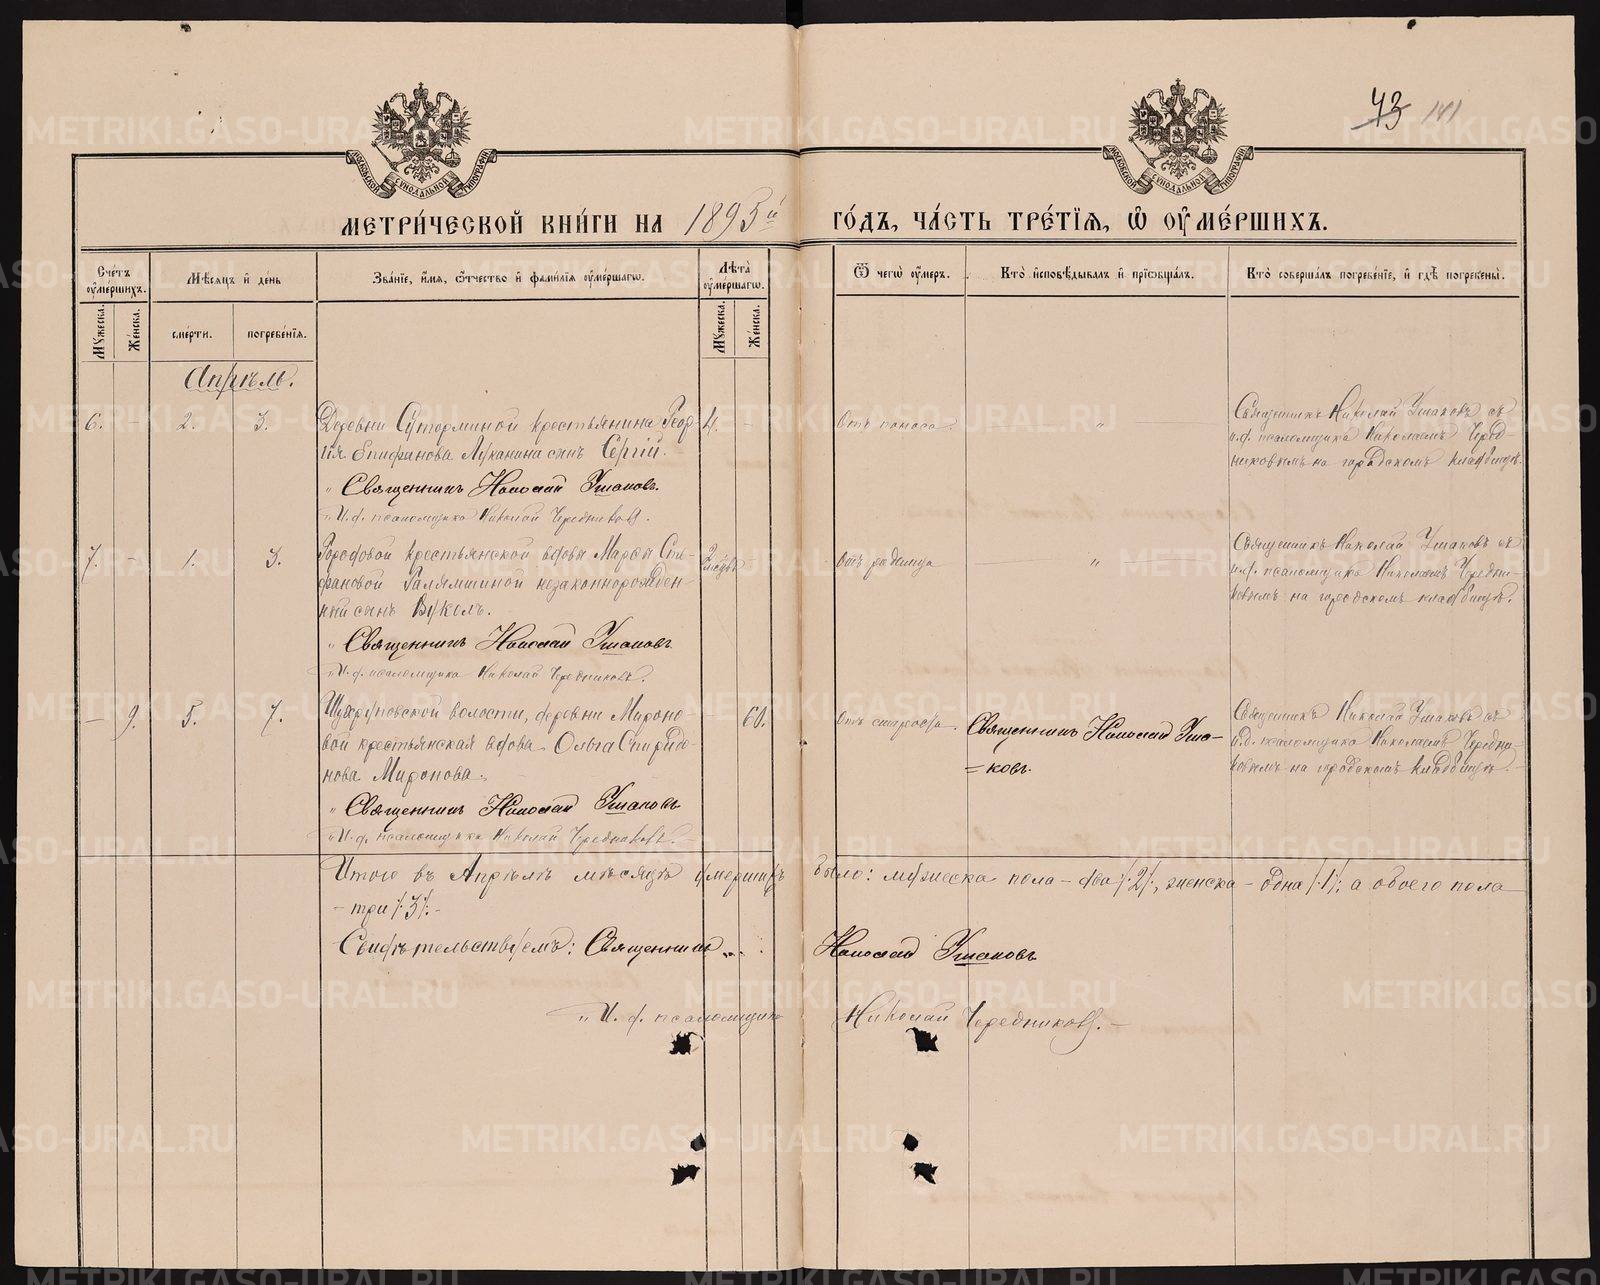 43 141
МОСКОВСКОЙ СѴНОДАЛЬНОЙ ТИПОГРАФІИ
МОСКОВСКОЙ СѴНОДАЛЬНОЙ ТИПОГРАФІИ
МЕТРИ́ЧЕСКОЙ КНИ́ГИ НА 1895й ГО́ДЪ, ЧА́СТЬ ТРЕ́ТІѦ, Ѡ҆ ОУ҆МЕ́РШИХЪ.
Сче́тъ оу҆ме́ршихъ.
Мꙋ́жеска. Же́нска.
Мѣ́сѧцъ и҆ де́нь
сме́рти. погребе́нїѧ.
Зва́нїе, и҆́мѧ, ѻ҆́тчество и҆ фамилїѧ оу҆ме́ршагѡ.
Лѣ́та оу҆ме́ршагѡ.
Мꙋ́жеска. Же́нска.
Ѿ чегѡ̀ оу҆́меръ.
Кто̀ и҆сповѣ́дывалъ и҆ прїѡбща́лъ.
Кто̀ соверша́лъ погребе́нїе, и҆ гдѣ̀ погребены̀.
Апрѣль.
6. - 2. 3. Деревни Сутормини́ной крестьянина Геор-
гія Епифанова Луканина сынъ Сергій. 4. -
" Священникъ Николай Ушаковъ.
" И. д. псаломщика Николай Чередниковъ.
Отъ поноса. "
Священникъ Николай Ушаковъ съ
и.д. псаломщика Николаемъ Черед-
никовымъ на городскомъ кладбищѣ.
7. - 1. 3. Городовой крестьянской вдовы Марфы Сте-
фановой незаконнорожден-
ный сынъ Вуколъ.
" Священникъ Николай Ушаковъ
" И. д. псаломщика Николай Чередниковъ.
Отъ родимца "
Священникъ Николай Ушаковъ съ
и.д. псаломщика Николаемъ Чередни-
ковымъ на городскомъ кладбищѣ.
- 9. 5. 7. волости, деревни Мироно-
вой крестьянская вдова Ольга Спиридо-
нова Миронова. - 60.
" Священникъ Николай Ушаковъ
" И. д. псаломщика Николай Чередниковъ.
Отъ старости. Священникъ Николай Уша-
=ковъ.
Священникъ Николай Ушаковъ съ
и.д. псаломщика Николаемъ Чередни-
ковымъ на городскомъ кладбищѣ.
Итого въ Апрѣлѣ мѣсяцѣ умершихъ было: мужеска пола - два /:2/:, женска - одна /:1/:; а обоего пола
- три /:3/:.-
Свидѣтельствуемъ: Священникъ Николай Ушаковъ
" И. д. псаломщика Николай Чередниковъ.-
METRIKI.GASO-URAL.RU